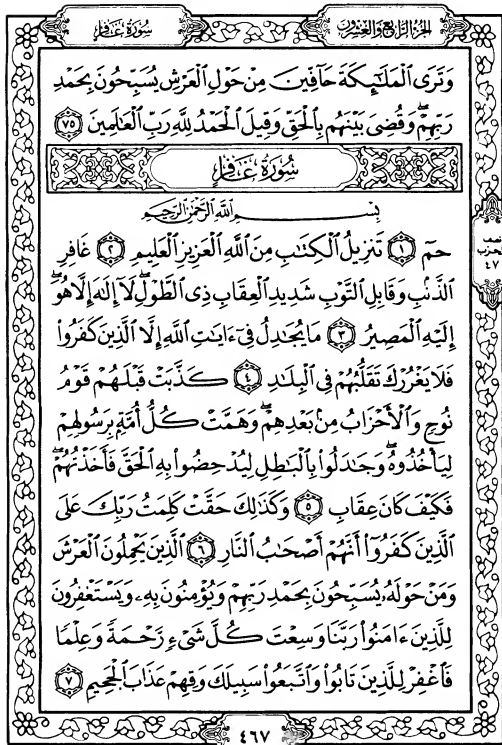 الجزء الرابع والعشرون
سورة غافر
وَتَرَى الْمَلَٰٓئِكَةَ حَآفِّينَ مِنْ حَوْلِ الْعَرْشِ يُسَبِّحُونَ بِحَمْدِ
رَبِّهِمْ ۖ وَقُضِىَ بَيْنَهُم بِالْحَقِّ وَقِيلَ الْحَمْدُ لِلَّهِ رَبِّ الْعَٰلَمِينَ ٧٥
سُورَةُ غَافِرٍ
بِسْمِ اللَّهِ الرَّحْمَٰنِ الرَّحِيمِ
حمٓ ١ تَنزِيلُ الْكِتَٰبِ مِنَ اللَّهِ الْعَزِيزِ الْعَلِيمِ ٢ غَافِرِ
الذَّنۢبِ وَقَابِلِ التَّوْبِ شَدِيدِ الْعِقَابِ ذِى الطَّوْلِ ۖ لَآ إِلَٰهَ إِلَّا هُوَ ۖ
إِلَيْهِ الْمَصِيرُ ٣ مَا يُجَٰدِلُ فِىٓ ءَايَٰتِ اللَّهِ إِلَّا الَّذِينَ كَفَرُوا۟
فَلَا يَغْرُرْكَ تَقَلُّبُهُمْ فِى الْبِلَٰدِ ٤ كَذَّبَتْ قَبْلَهُمْ قَوْمُ
نُوحٍ وَالْأَحْزَابُ مِنۢ بَعْدِهِمْ ۖ وَهَمَّتْ كُلُّ أُمَّةٍۭ بِرَسُولِهِمْ
لِيَأْخُذُوهُ ۖ وَجَٰدَلُوا۟ بِالْبَٰطِلِ لِيُدْحِضُوا۟ بِهِ الْحَقَّ فَأَخَذْتُهُمْ ۖ
فَكَيْفَ كَانَ عِقَابِ ٥ وَكَذَٰلِكَ حَقَّتْ كَلِمَتُ رَبِّكَ عَلَى
الَّذِينَ كَفَرُوٓا۟ أَنَّهُمْ أَصْحَٰبُ النَّارِ ٦ الَّذِينَ يَحْمِلُونَ الْعَرْشَ
وَمَنْ حَوْلَهُۥ يُسَبِّحُونَ بِحَمْدِ رَبِّهِمْ وَيُؤْمِنُونَ بِهِۦ وَيَسْتَغْفِرُونَ
لِلَّذِينَ ءَامَنُوا۟ رَبَّنَا وَسِعْتَ كُلَّ شَىْءٍ رَّحْمَةً وَعِلْمًا
فَاغْفِرْ لِلَّذِينَ تَابُوا۟ وَاتَّبَعُوا۟ سَبِيلَكَ وَقِهِمْ عَذَابَ الْجَحِيمِ ٧
نصف
الحزب
٤٧
٤٦٧